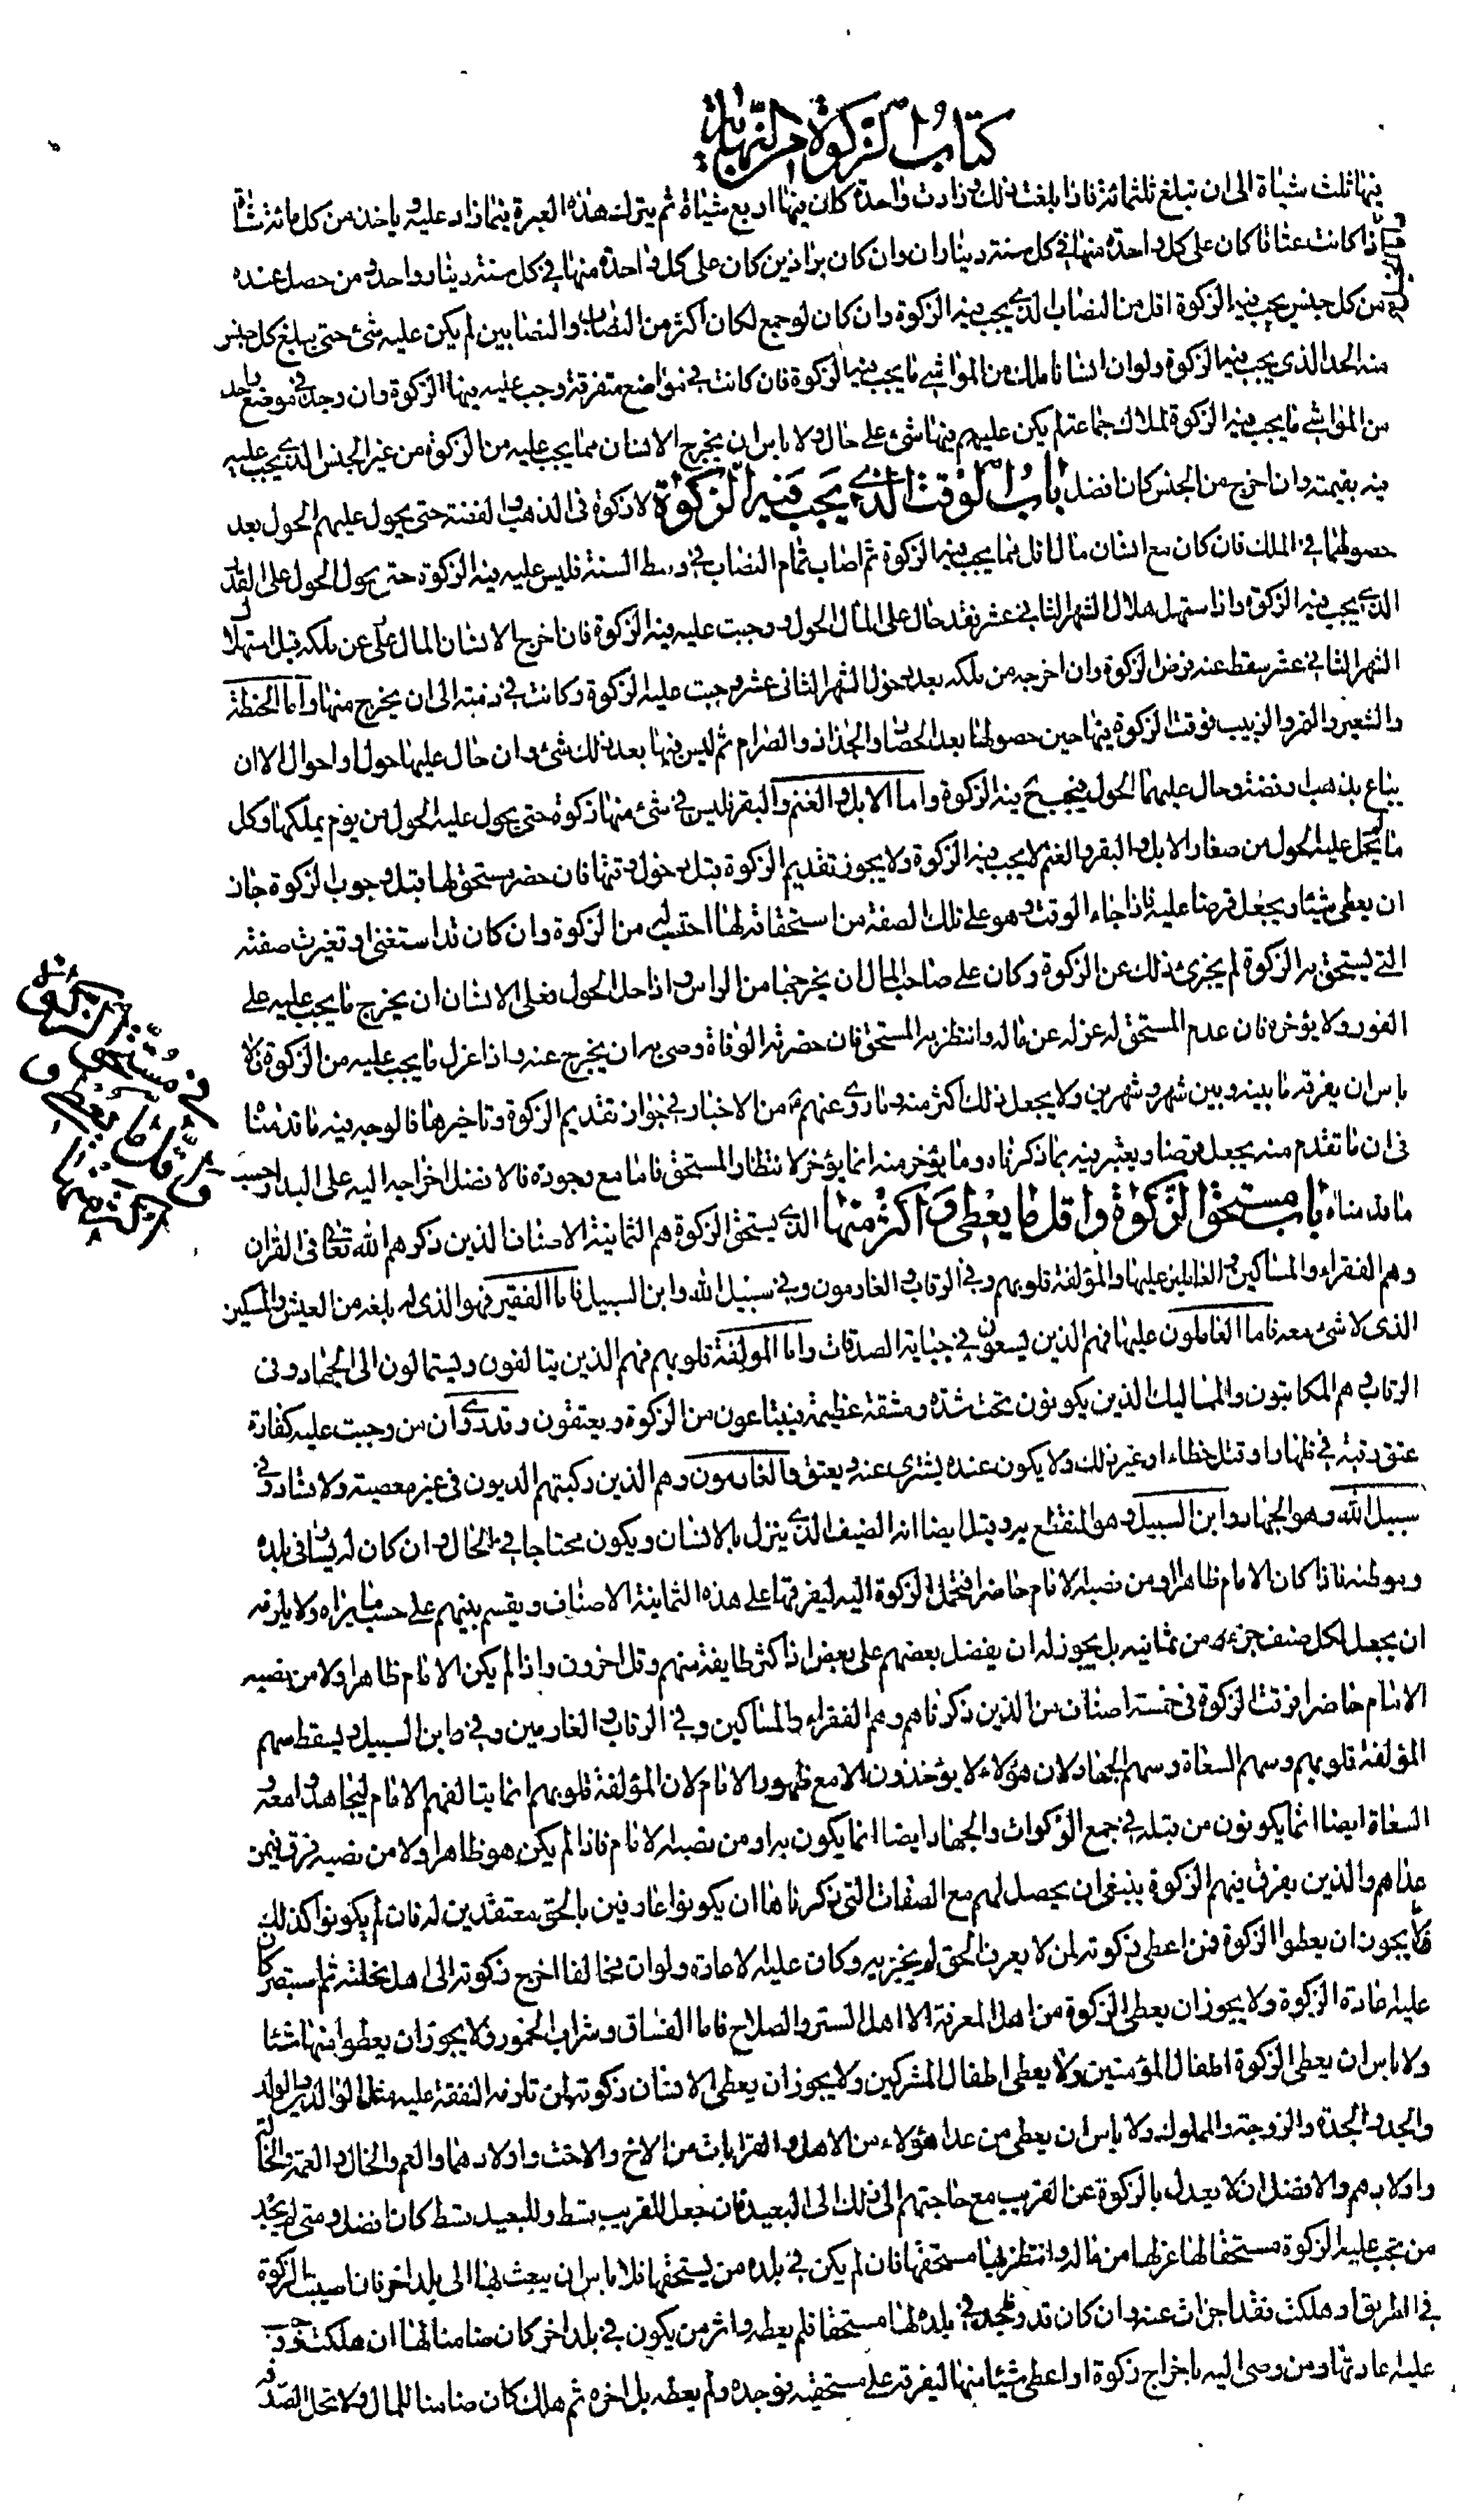 كتاب الزكوة من النهاية
فيها ثلث شياة الى ان تبلغ ثلثمائة فاذا بلغت ذلك وزادت واحدة كان فيها اربع شياة ثم يترك هذه العبرة فيما زاد عليه وياخذ من كل مائة شاة
اذا كانت عتاقا كان على كل واحدة منها في كل سنة ديناران وان كان براذين كان على كل واحدة منها في كل سنة دينار واحد ومن حصل عنده
من كل جنس يجب فيه الزكوة اقل من النصاب الذي يجب فيه الزكوة وان كان لو جمع لكان اكثر من النصاب والنصابين لم يكن عليه شئ حتى يبلغ كل جنس
منه الحد الذي يجب فيه الزكوة ولو ان انسانا ملك من المواشي ما يجب فيه الزكوة فان كانت في مواضع متفرقة وجب عليه فيها الزكوة وان وجد في موضع واحد
من المواشي ما يجب فيه الزكوة لملاك جماعة لم يكن عليهم فيها شئ على حال ولا باس ان يخرج الانسان مما يجب عليه من الزكوة من غير الجنس الذي يجب عليه
فيه بقيمته وان اخرج من الجنس كان افضل باب الوقت الذي يجب فيه الزكوة لا زكوة في الذهب والفضة حتى يحول عليهم الحول بعد
حصولهما في الملك فان كان مع انسان مال اقل مما يجب فيه الزكوة ثم اصاب تمام النصاب في وسط السنة فليس عليه فيه الزكوة حتى يحول الحول على القدر
الذي يجب فيه الزكوة واذا استهل هلال الشهر الثاني عشر فقد حال على المال الحول ووجبت عليه فيه الزكوة فان اخرج الانسان المال عن ملكه قبل استهلال
الشهر الثاني عشر سقط عنه فرض الزكوة وان اخرجه من ملكه بعد دخول الشهر الثاني عشر وجبت عليه الزكوة وكانت في ذمته الى ان يخرج منها واما الحنطة
والشعير والتمر والزبيب فوقت الزكوة فيها حين حصولها بعد الحصاد والجذاذ والصرام ثم ليس فيها بعد ذلك شئ وان حال عليها حول او احوال الا ان
يباع بذهب او فضة وحال عليهما الحول فيجب فيه الزكوة واما الابل والغنم والبقر فليس في شئ منها زكوة حتى يحول عليه الحول من يوم يملكها وكل
ما لم يحل عليه الحول من صغار الابل والبقر والغنم لا يجب فيه الزكوة ولا يجوز تقديم الزكوة قبل دخول وقتها فان حضر مستحق لها قبل وجوب الزكوة جاز
ان يعطى شيئا ويجعل قرضا عليه فاذا جاء الوقت وهو على تلك الصفة من استحقاقه لها احتسب له من الزكوة وان كان قد استغنى او تغيرت صفته
التي يستحق بها الزكوة لم يجزئ ذلك عن الزكوة وكان على صاحب المال ان يخرجها من الراس واذا حل الحول فعلى الانسان ان يخرج ما يجب عليه على
الفور ولا يؤخره فان عدم المستحق له عزله عن ماله وانتظر به المستحق فان حضرته الوفاة وصى به ان يخرج عنه واذا عزل ما يجب عليه من الزكوة فلا
باس ان يفرقه ما بينه وبين شهر وشهرين ولا يجعل ذلك اكثر منه وما روي عنهم ع من الاخبار في جواز تقديم الزكوة وتاخيرها فالوجه فيه ما قدمنا
في ان ما تقدم منه يجعل قرضا ويعتبر فيه بما ذكرناه وما يؤخر منه انما يؤخر لانتظار المستحق فاما مع وجوده فالافضل اخراجه اليه على البدار حسب
ما قدمناه باب مستحق الزكوة واقل ما يعطى واكثر منها الذي يستحق الزكوة هم الثمانية الاصناف الذين ذكرهم الله تعالى في القران
وهم الفقراء والمساكين والعاملين عليها والمؤلفة قلوبهم وفي الرقاب والغارمون وفي سبيل الله وابن السبيل فاما الفقير فهو الذي له بلغة من العيش والمسكين
الذي لا شئ معه فاما العاملون عليها فهم الذين يسعون في جباية الصدقات واما المؤلفة قلوبهم فهم الذين يتالفون ويستمالون الى الجهاد وفي
الرقاب هم المكاتبون والمماليك الذين يكونون تحت شدة ومشقة عظيمة فيبتاعون من الزكوة ويعتقون وقد روي ان من وجبت عليه كفارة
عتق رقبة في ظهار او قتل خطاء او غير ذلك ولا يكون عنده يشترى عنه ويعتق والغارمون وهم الذين ركبتهم الديون في غير معصية ولا فساد وفي
سبيل الله وهو الجهاد وابن السبيل وهو المنقطع به وقيل ايضا انه الضيف الذي ينزل بالانسان ويكون محتاجا في الحال وان كان له يسار في بلده
وموطنه فاذا كان الامام ظاهرا او من نصبه الامام حاضرا فتحمل الزكوة اليه ليفرقها على هذه الثمانية الاصناف ويقسم بينهم على حسب ما يراه ولا يلزمه
ان يجعل لكل صنف جزء من ثمانية بل يجوز له ان يفضل بعضهم على بعض اذا كثر طايفة منهم وقل اخرون واذا لم يكن الامام ظاهرا ولا من نصبه
الامام حاضرا فرقت الزكوة في خمسة اصناف من الذين ذكرناهم وهم الفقراء والمساكين وفي الرقاب والغارمين وفي وابن السبيل ويسقط سهم
المؤلفة قلوبهم وسهم السعاة وسهم الجهاد لان هؤلاء لا يؤخذون الا مع ظهور الامام لان المؤلفة قلوبهم انما يتالفهم الامام ليجاهدوا معه و
السعاة ايضا انما يكونون من قبله في جمع الزكوات والجهاد ايضا انما يكون به او من نصبه الامام فاذا لم يكن هو ظاهرا ولا من نصبه فرق فيمن
عداهم والذين يفرق فيهم الزكوة ينبغي ان يحصل لهم مع الصفات التي ذكرناها ان يكونوا عارفين بالحق معتقدين له فان لم يكونوا كذلك
فلا يجوز ان يعطوا الزكوة فمن اعطى زكوته لمن لا يعرف الحق لم يجزيه وكان عليه الاعادة ولو ان مخالفا اخرج زكوته الى اهل نحلته ثم استبصر كان
عليه اعادة الزكوة ولا يجوز ان يعطى الزكوة من اهل المعرفة الا اهل الستر والصلاح فاما الفساق وشراب الخمور فلا يجوز ان يعطوا منها شيئا
ولا باس ان يعطى الزكوة اطفال المؤمنين ولا يعطى اطفال المشركين ولا يجوز ان يعطى الانسان زكوته لمن تلزمه النفقة عليه مثل الوالدين والولد
والجد والجدة والزوجة والمملوك ولا باس ان يعطي من عدا هؤلاء من الاهل والقرابات من الاخ والاخت واولادهما والعم والخال والعمة والخالة
واولادهم والافضل ان لا يعدل بالزكوة عن القريب مع حاجتهم الى ذلك الى البعيد فان جعل للقريب قسط وللبعيد قسط كان افضل ومتى لم يجد
من تجب عليه الزكوة مستحقا لها عزلها من ماله وانتظر بها مستحقها فان لم يكن في بلده من يستحقها فلا باس ان يبعث بها الى بلد اخر فان اصيبت الزكوة
في الطريق او هلكت فقد اجزات عنه وان كان قد وجد في بلده لها مستحقا فلم يعطه واثر من يكون في بلد اخر كان ضامنا لها ان هلكت ووجب
عليه اعادتها ومن وصى اليه باخراج زكوة او اعطي شيئا منها ليفرقه على مستحقيه فوجده ولم يعطه بل اخره ثم هلك كان ضامنا للمال ولا تحل الصدقة
في مستحق
الزكوة و
اقل ما يعطى و
اكثر منها